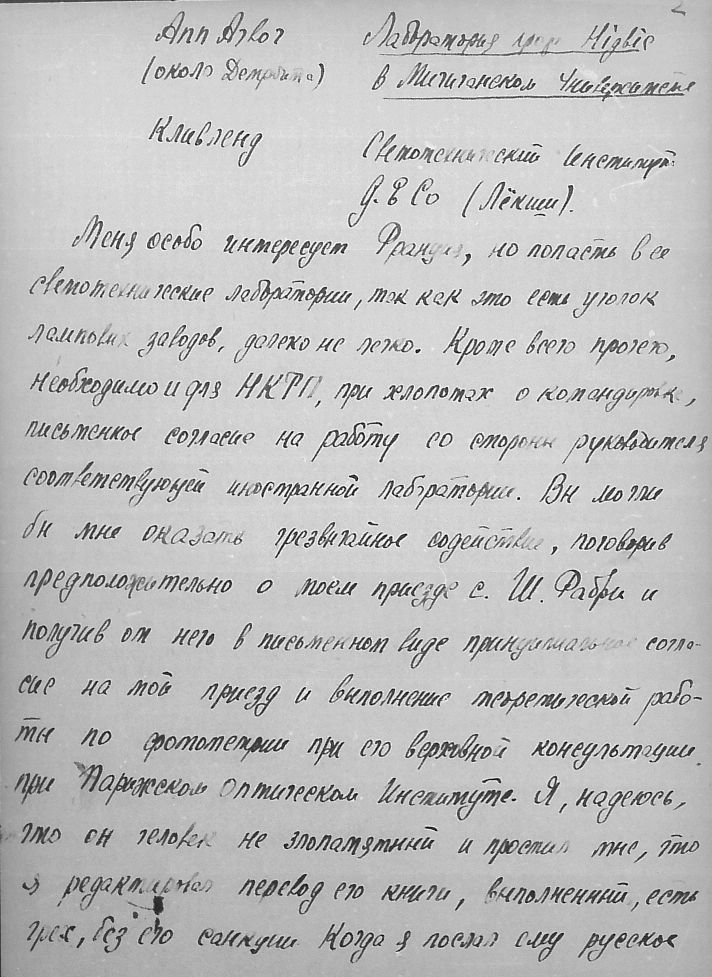 2
Ann Arbor Лаборатория проф Higbie
(около Детройта) в Мичиганском Университете
Кливленд
Светотехнический Институт
G. E Co (Лёкиш).
Меня особо интересует Франция, но попасть в ее
светотехнические лаборатории, так как это есть уголок
ламповых заводов, далеко не легко. Кроме всего прочего,
необходимо и для НКТП, при хлопотах о командировке,
письменное согласие на работу со стороны руководителя
соответствующей иностранной лаборатории. Вы могли
бы мне оказать чрезвычайное содействие, поговорив
предположительно о моем приезде с. Ш. Фабри и
получив от него в письменном виде принципиальное согла-
сие на мой приезд и выполнение теоретической рабо-
ты по фотометрии при его верховной консультации
при Парижском Оптическом Институте. Я, надеюсь,
что он человек не злопамятный и простил мне, что
я редактировал перевод его книги, выполненный, есть
грех, без его санкции Когда я послал ему русское